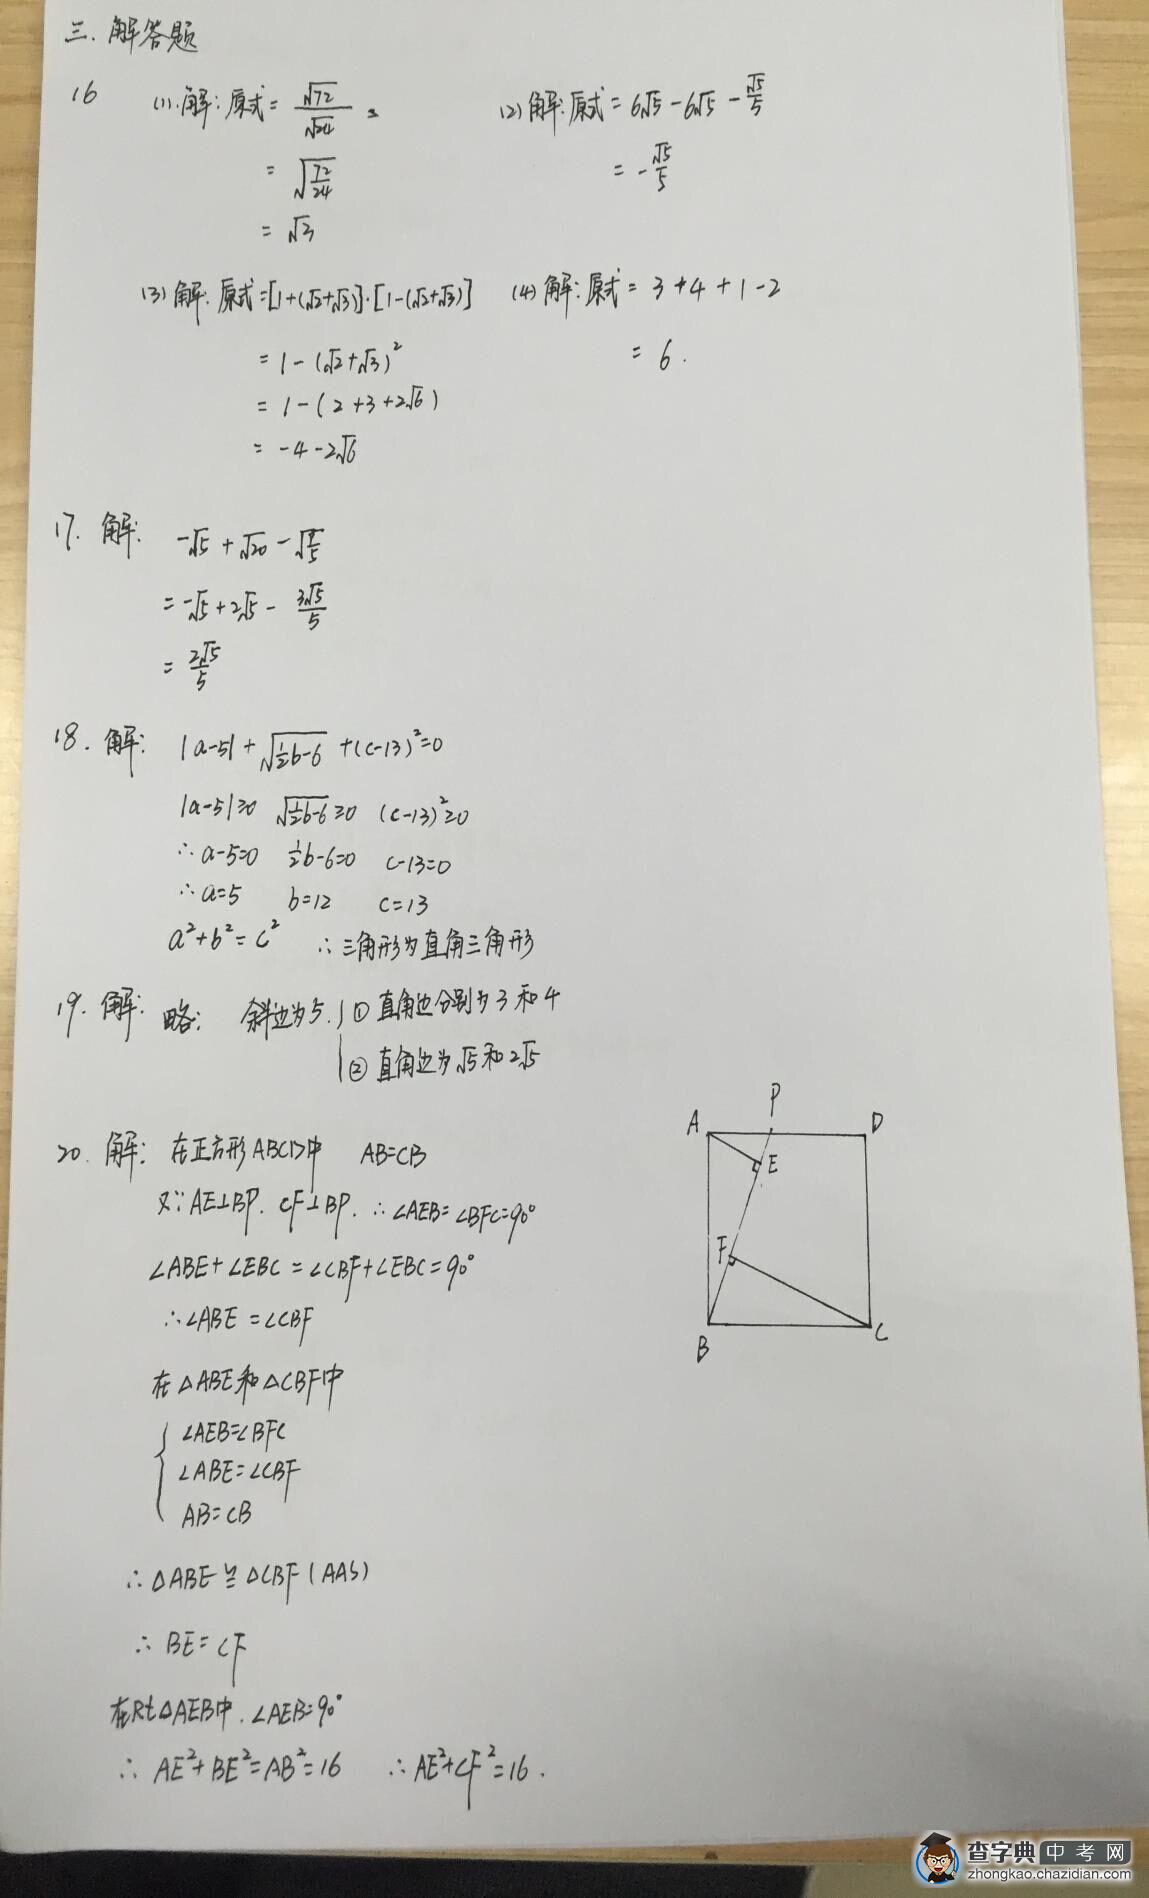 三. 解答题
16 (1).解:原式 = √72/√24
= √(72/24)
= √3
(2) 解:原式 = 6√5 - 6√5 - √5/5
= -√5/5
(3) 解:原式 = [1+(√2+√3)]·[1-(√2+√3)]
= 1-(√2+√3)²
= 1-(2+3+2√6)
= -4-2√6
(4) 解:原式 = 3+4+1-2
= 6.
17. 解: -√5 + √20 - √(9/5)
= -√5 + 2√5 - 3√5/5
= 2√5/5
18. 解: |a-5| + √(½b-6) + (c-13)² = 0
|a-5|≥0 √(½b-6)≥0 (c-13)²≥0
∴a-5=0 ½b-6=0 c-13=0
∴a=5 b=12 c=13
a²+b²=c² ∴三角形为直角三角形
19. 解: 略: 斜边为5. ①直角边分别为3和4
②直角边为√5和2√5
20. 解: 在正方形ABCD中 AB=CB
又∵AE⊥BP. CF⊥BP. ∴∠AEB=∠BFC=90°
∠ABE+∠EBC=∠CBF+∠EBC=90°
∴∠ABE=∠CBF
在△ABE和△CBF中
∠AEB=∠BFC
∠ABE=∠CBF
AB=CB
∴△ABE≌△CBF(AAS)
∴BE=CF
在Rt△AEB中.∠AEB=90°
∴AE²+BE²=AB²=16 ∴AE²+CF²=16.
A P D
E
F
B C
查字典中考网
zhongkao.chazidian.com